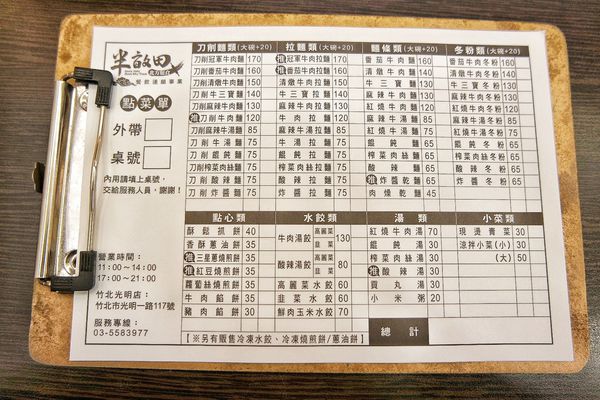 半畝田
餐飲連鎖事業
點菜單
外帶
桌號
內用請填上桌號,
交給服務人員,謝謝!
營業時間:
11:00~14:00
17:00~21:00
竹北光明店:
竹北市光明一路117號
服務專線:
03-5583977
刀削麵類(大碗+20)
刀削冠軍牛肉麵 170
刀削番茄牛肉麵 160
刀削清燉牛肉麵 150
刀削三寶麵 140
刀削麻辣牛肉麵 130
推 刀削牛肉麵 120
刀削麻辣牛湯麵 85
刀削牛湯麵 75
刀削餛飩麵 75
刀削榨菜肉絲麵 75
刀削炸醬麵 75
拉麵類(大碗+20)
推 冠軍牛肉拉麵 170
推 番茄牛肉拉麵 160
清燉牛肉拉麵 150
牛三寶拉麵 140
麻辣牛肉拉麵 130
牛肉拉麵 120
麻辣牛湯拉麵 85
牛湯拉麵 75
餛飩拉麵 75
榨菜肉絲拉麵 75
炸醬拉麵 75
麵條類(大碗+20)
番茄牛肉麵 160
清燉牛肉麵 150
牛三寶麵 140
麻辣牛肉麵 130
紅燒牛肉麵 120
麻辣牛湯麵 85
紅燒牛湯麵 75
餛飩麵 65
榨菜肉絲麵 65
推 炸醬乾麵 65
肉燥乾麵 45
冬粉類(大碗+20)
番茄牛肉冬粉 160
清燉牛肉冬粉 150
牛三寶冬粉 140
麻辣牛肉冬粉 130
紅燒牛肉冬粉 120
麻辣牛湯冬粉 85
紅燒牛湯冬粉 75
餛飩冬粉 65
榨菜肉絲冬粉 65
炸醬冬粉 65
點心類
酥鬆抓餅 40
香酥蔥油餅 35
推 三星蔥燒煎餅 30
推 紅豆燒煎餅 30
蘿蔔絲燒煎餅 30
牛肉餡餅 30
豬肉餡餅 30
水餃類
牛肉湯餃 高麗菜 韭菜 130
酸辣湯餃 高麗菜 韭菜 80
高麗菜水餃 60
韭菜水餃 60
鮮肉玉米水餃 70
湯類
紅燒牛肉湯 70
餛飩湯 30
推 酸辣湯 30
貢丸湯 30
小米粥 20
小菜類
現燙青菜 30
涼拌小菜(小) 30
(大) 50
【※另有販售冷凍水餃、冷凍燒煎餅/蔥油餅】
總計